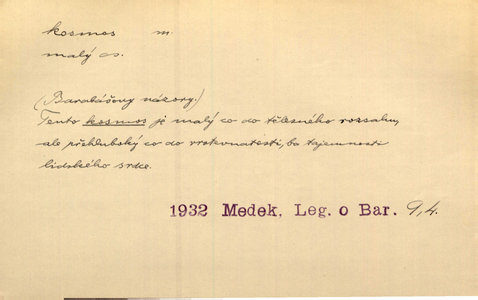 kosmos m.
malý os.
(Barabášovy názory.)
Tento kosmos je malý co do tělesného rozsahu,
ale přehluboký co do vrstevnatosti, ba tajemnosti
lidského srdce.
1932 Medek, Leg. o Bar. 9,4.